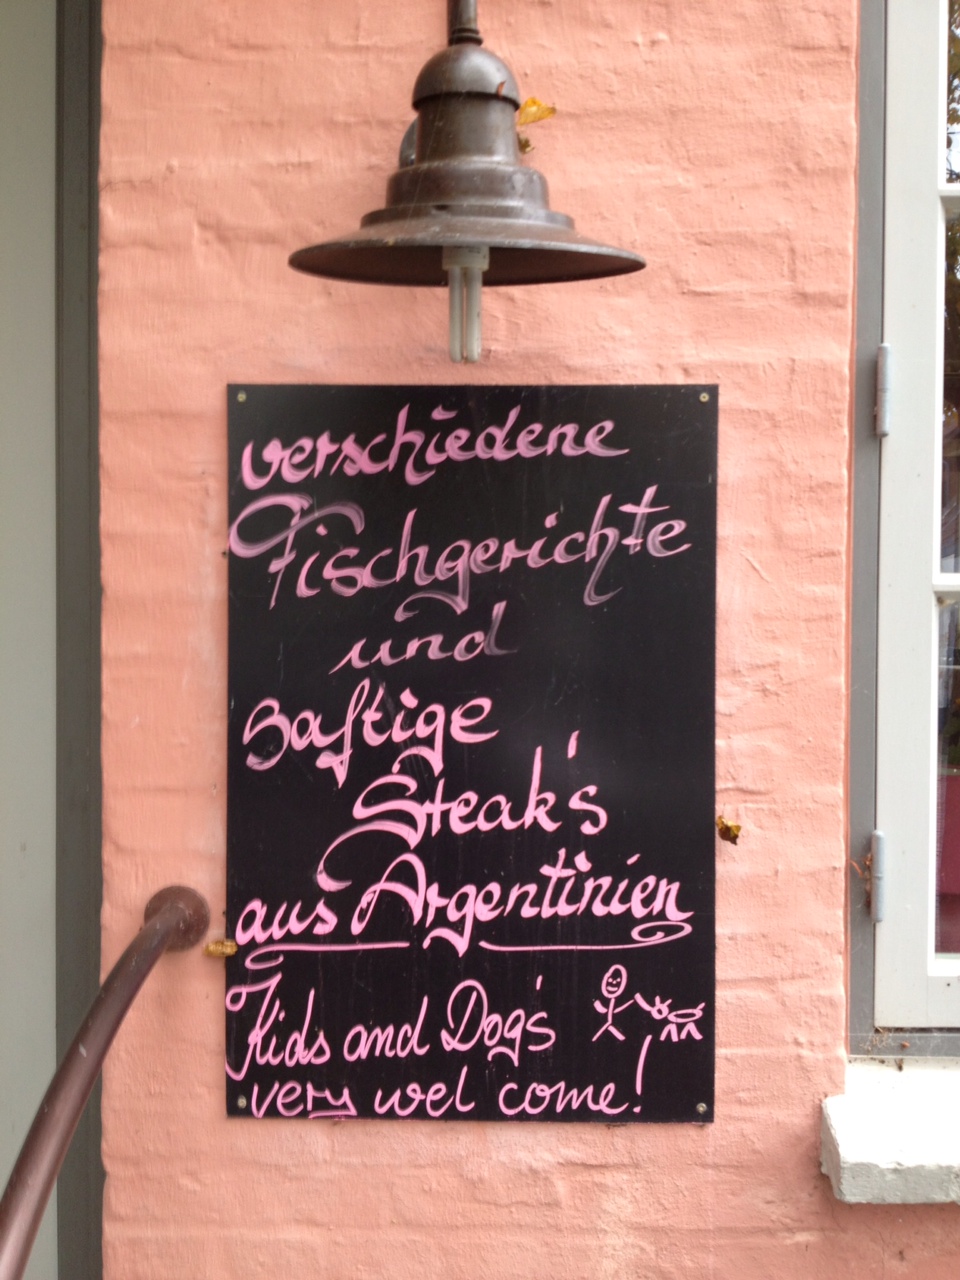 verschiedene
Fischgerichte
und
Saftige
Steak's
aus Argentinien
Kids and Dog's
very wel come!